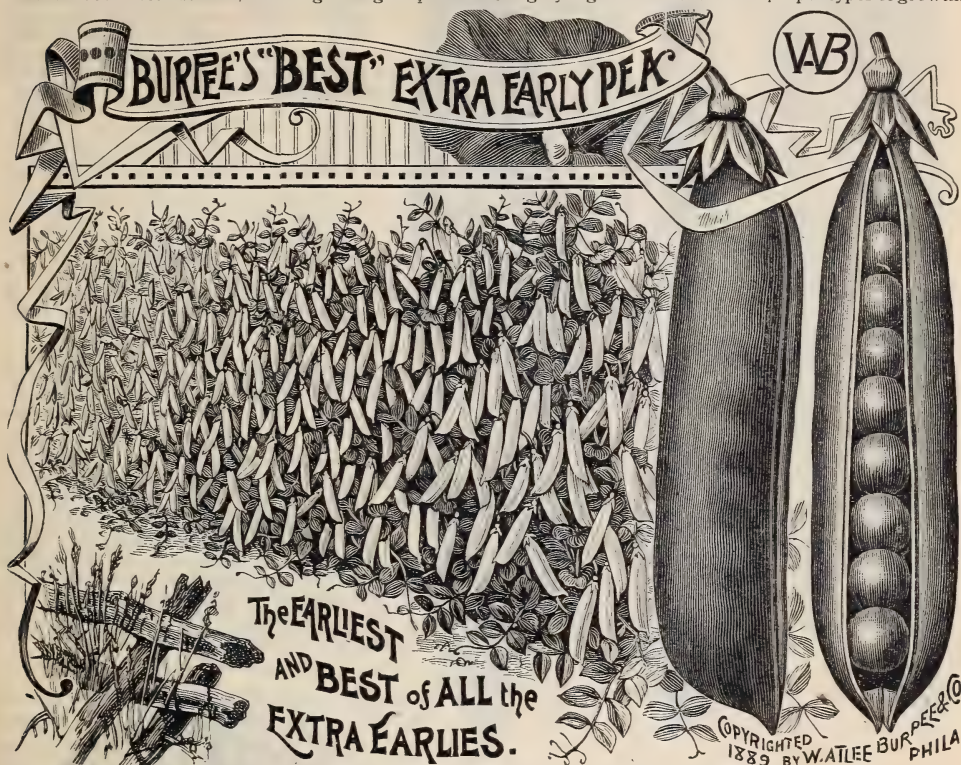 BURPEE'S "BEST" EXTRA EARLY PEA
WAB
The EARLIEST
AND BEST of ALL the
EXTRA EARLIES.
COPYRIGHTED
1889 BY W. ATLEE BURPEE & CO
PHILA